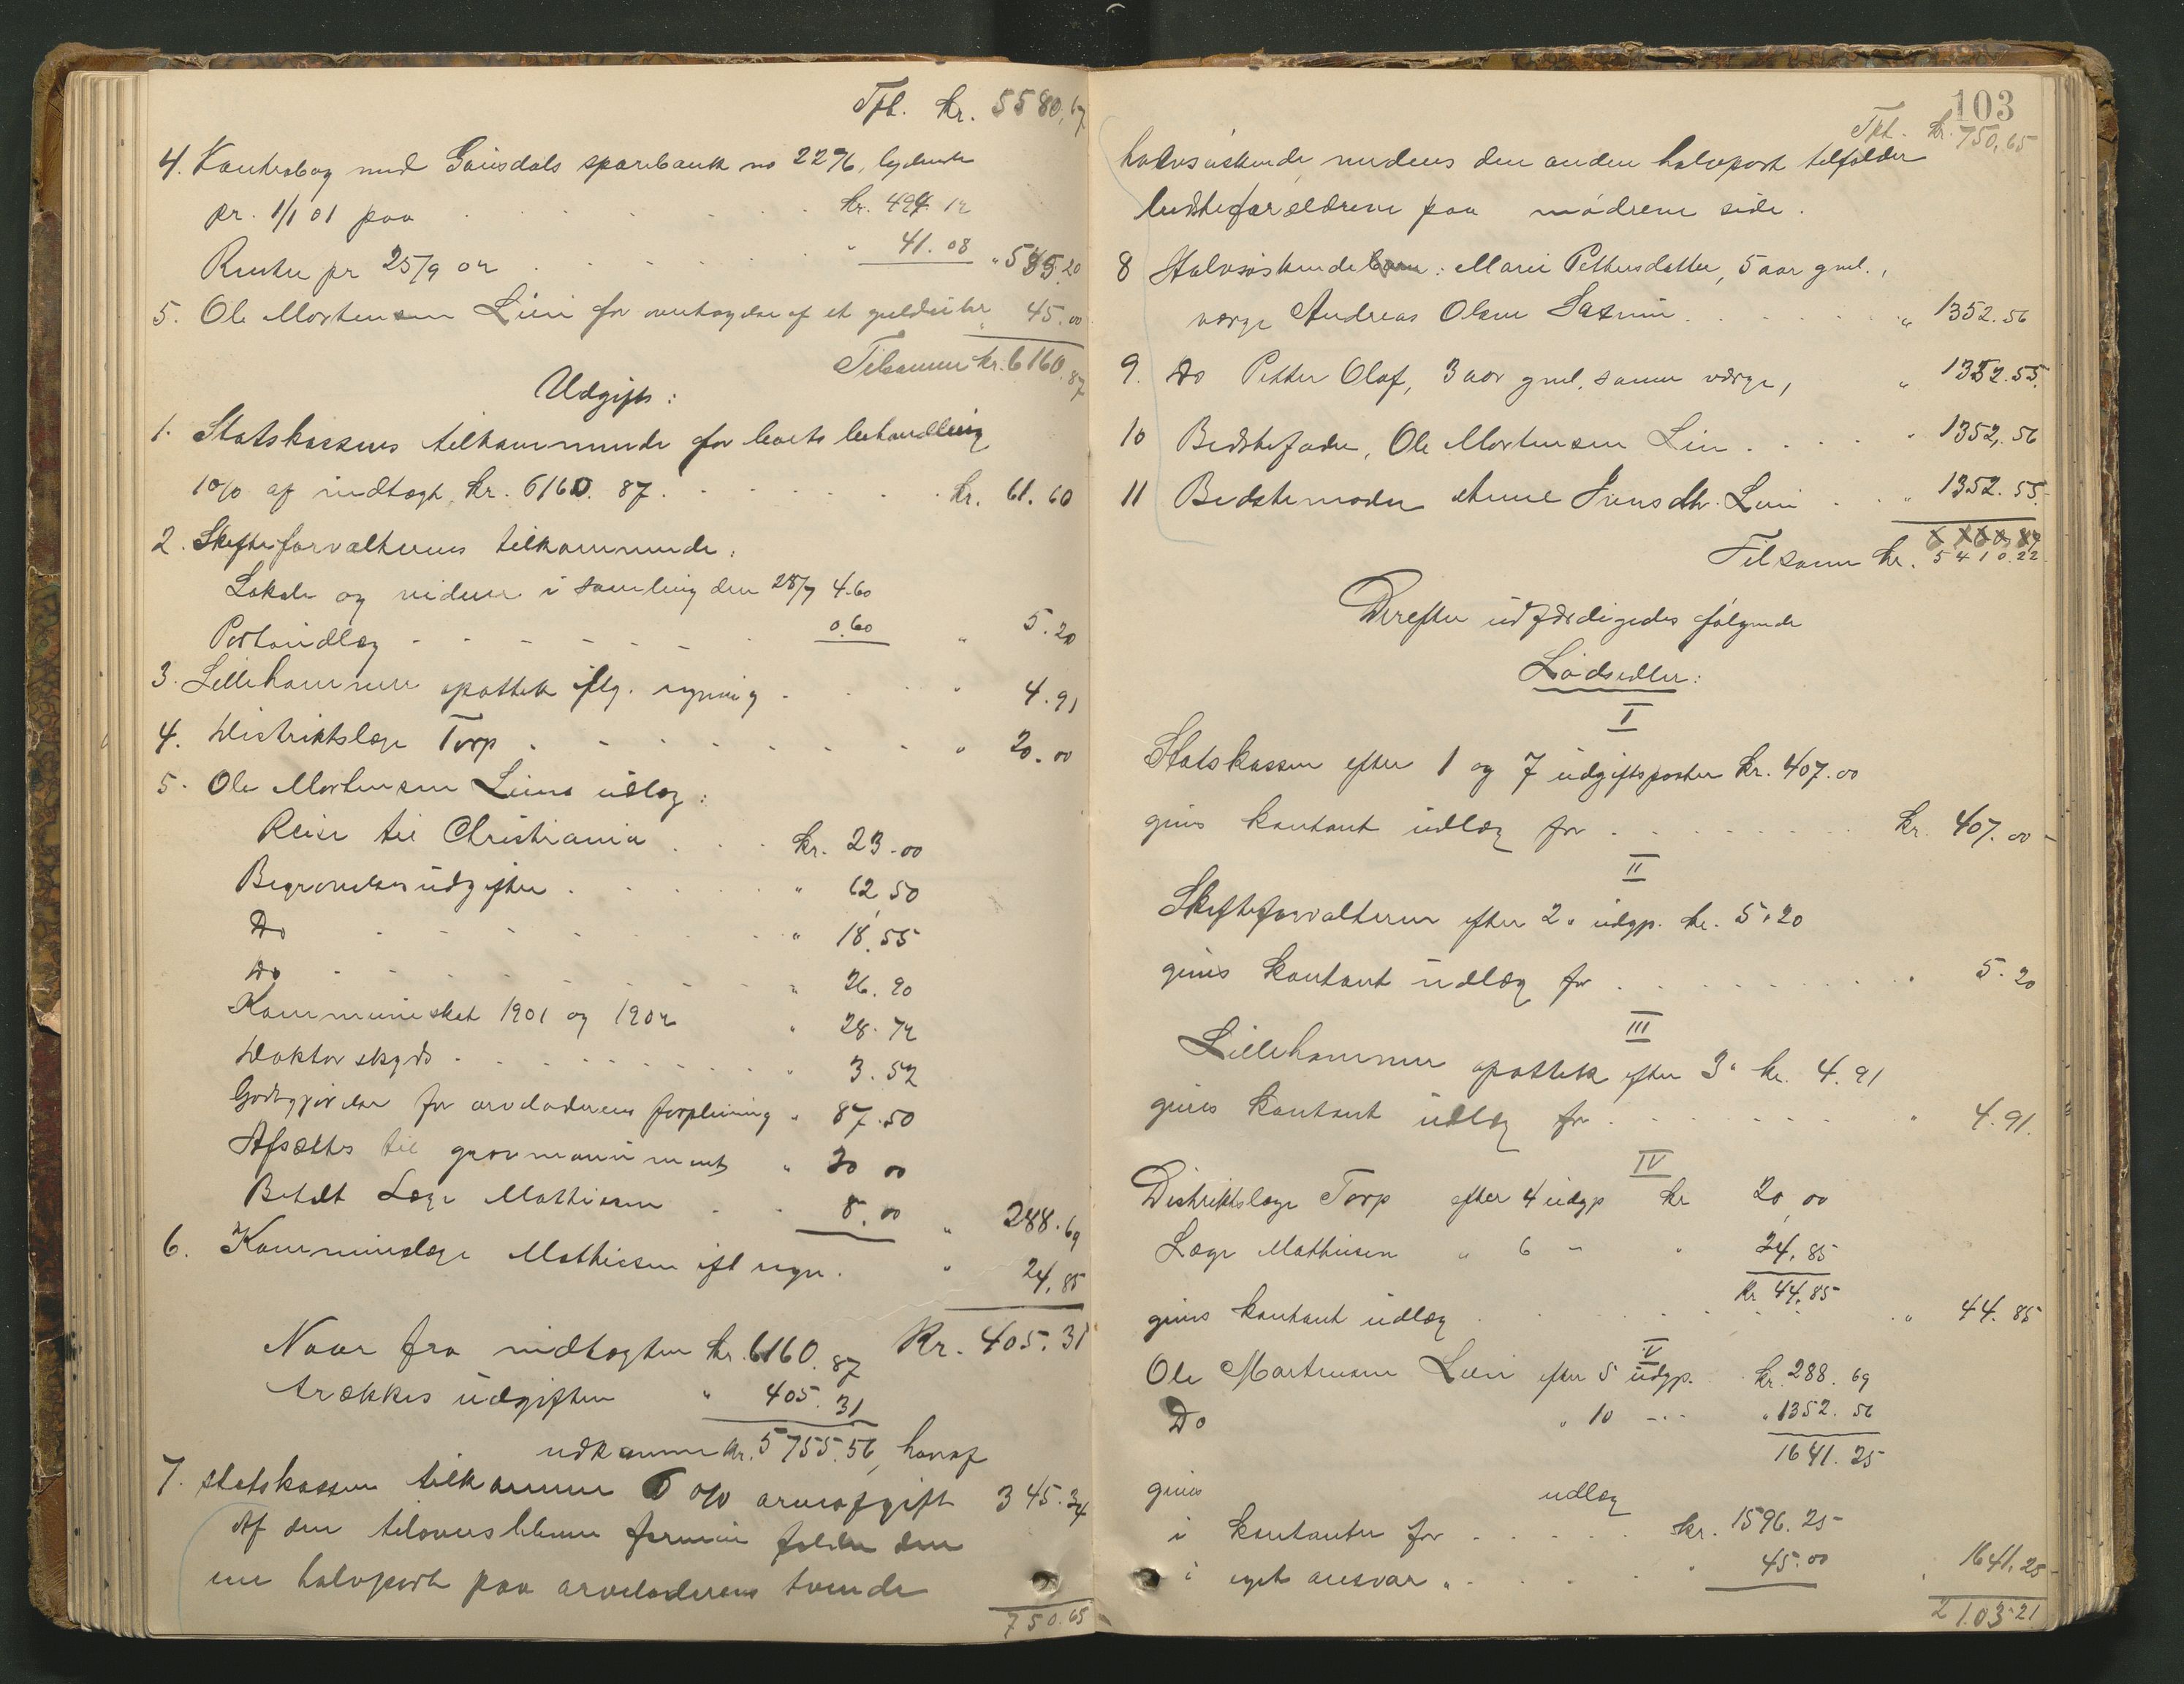 Tfl. kr. 5580,67
4. Kontrabog med Gausdals sparebank no 2276, lydende
pr. 1/1 01 paa . . . . . . kr. 494.12
Renter pr 25/9 02 . . . . . . " 41.08 " 535.20
5. Ole Mortensen Lien for overtagelse af et guldeuhr " 45.00
Tilsammen kr. 6160.87
Udgift:
1. Statskassens tilkommende for boets behandling
1 0/0 af indtægt, kr. 6160.87 . . . . . . kr. 61.60
2. Skifteforvalterens tilkommende:
Lokale og vidner i samling den 25/9 4.60
Portoudlæg - - - - - - 0.60 " 5.20
3. Lillehammer apothek iflg. regning . . . . " 4.91
4. Distriktslæge Torp . - - - - - . " 20.00
5. Ole Mortensen Liens udlæg:
Reise til Christiania . . . kr. 23.00
Begravelsesudgifter . . . . . " 62,50
Do - - - - - - " 18,55
Do - - - - - - " 26.90
Kommuneskat 1901 og 1902 " 28.72
Doktorskyds . . . . . . " 3.52
Godtgjørelse for arveladerens forpleining " 87.50
Afsættes til gravmonument " 30 00
Betalt Læge Mathiesen . . 8.00 " 288.69
6. Kommunelæge Mathiesen ifl regn. " 24,85
Kr. 405.31
Naar fra indtægten kr. 6160.87
trækkes udgiften " 405.31
udkommer kr. 5755.56, hvoraf
7. statskassen tilkommer 6 0/0 arveafgift 345.34
Af den tiloversblevne formue falder den
ene halvpart paa arveladerens tvende
750.65
103
Tfl. kr. 750,65
halvsøskende, medens den anden halvpart tilfalder
bedsteforældrene paa mødrene side.
8 Halvsøskendebarn: Marie Pettersdatter, 5 aar gml.,
værge Andreas Olsen . . . . . " 1352.56
9. Do Petter Olaf, 3 aar gml. samme værge, " 1352.55
10 Bedstefader, Ole Mortensen Lien . . . . " 1352,56
11 Bedstemoder Anne Iversdtr. Lien . . " 1352.55
Tilsamm kr. 5410.22
Derefter udfærdigedes følgende
Lodsedler:
I
Statskassen efter 1 og 7 udgiftsposter kr. 407.00
gives kontant udlæg for . . . . . . . . kr. 407.00
II
Skifteforvalteren efter 2. udgp. kr. 5.20
gives kontant udlæg for . . . . . . . . . " 5.20
III
Lillehammer apothek efter 3" kr. 4.91
gives kontant udlæg for . . . . . . . " 4.91.
IV
Distriktslæge Torp efter 4 udgp kr 20,00
Læge Mathiesen " 6 - " 24,85
kr 44,85
gives kontant udlæg . . . . . . " 44.85
V
Ole Mortensen Lien efter 5 udgp. kr. 288.69
Do " 10 -.- " 1352.56
1641.25
gives udlæg
i kontanter for . . . . . kr. 1596.25
i eget ansvar " . . . . " 45.00 " 1641,25
2103.21